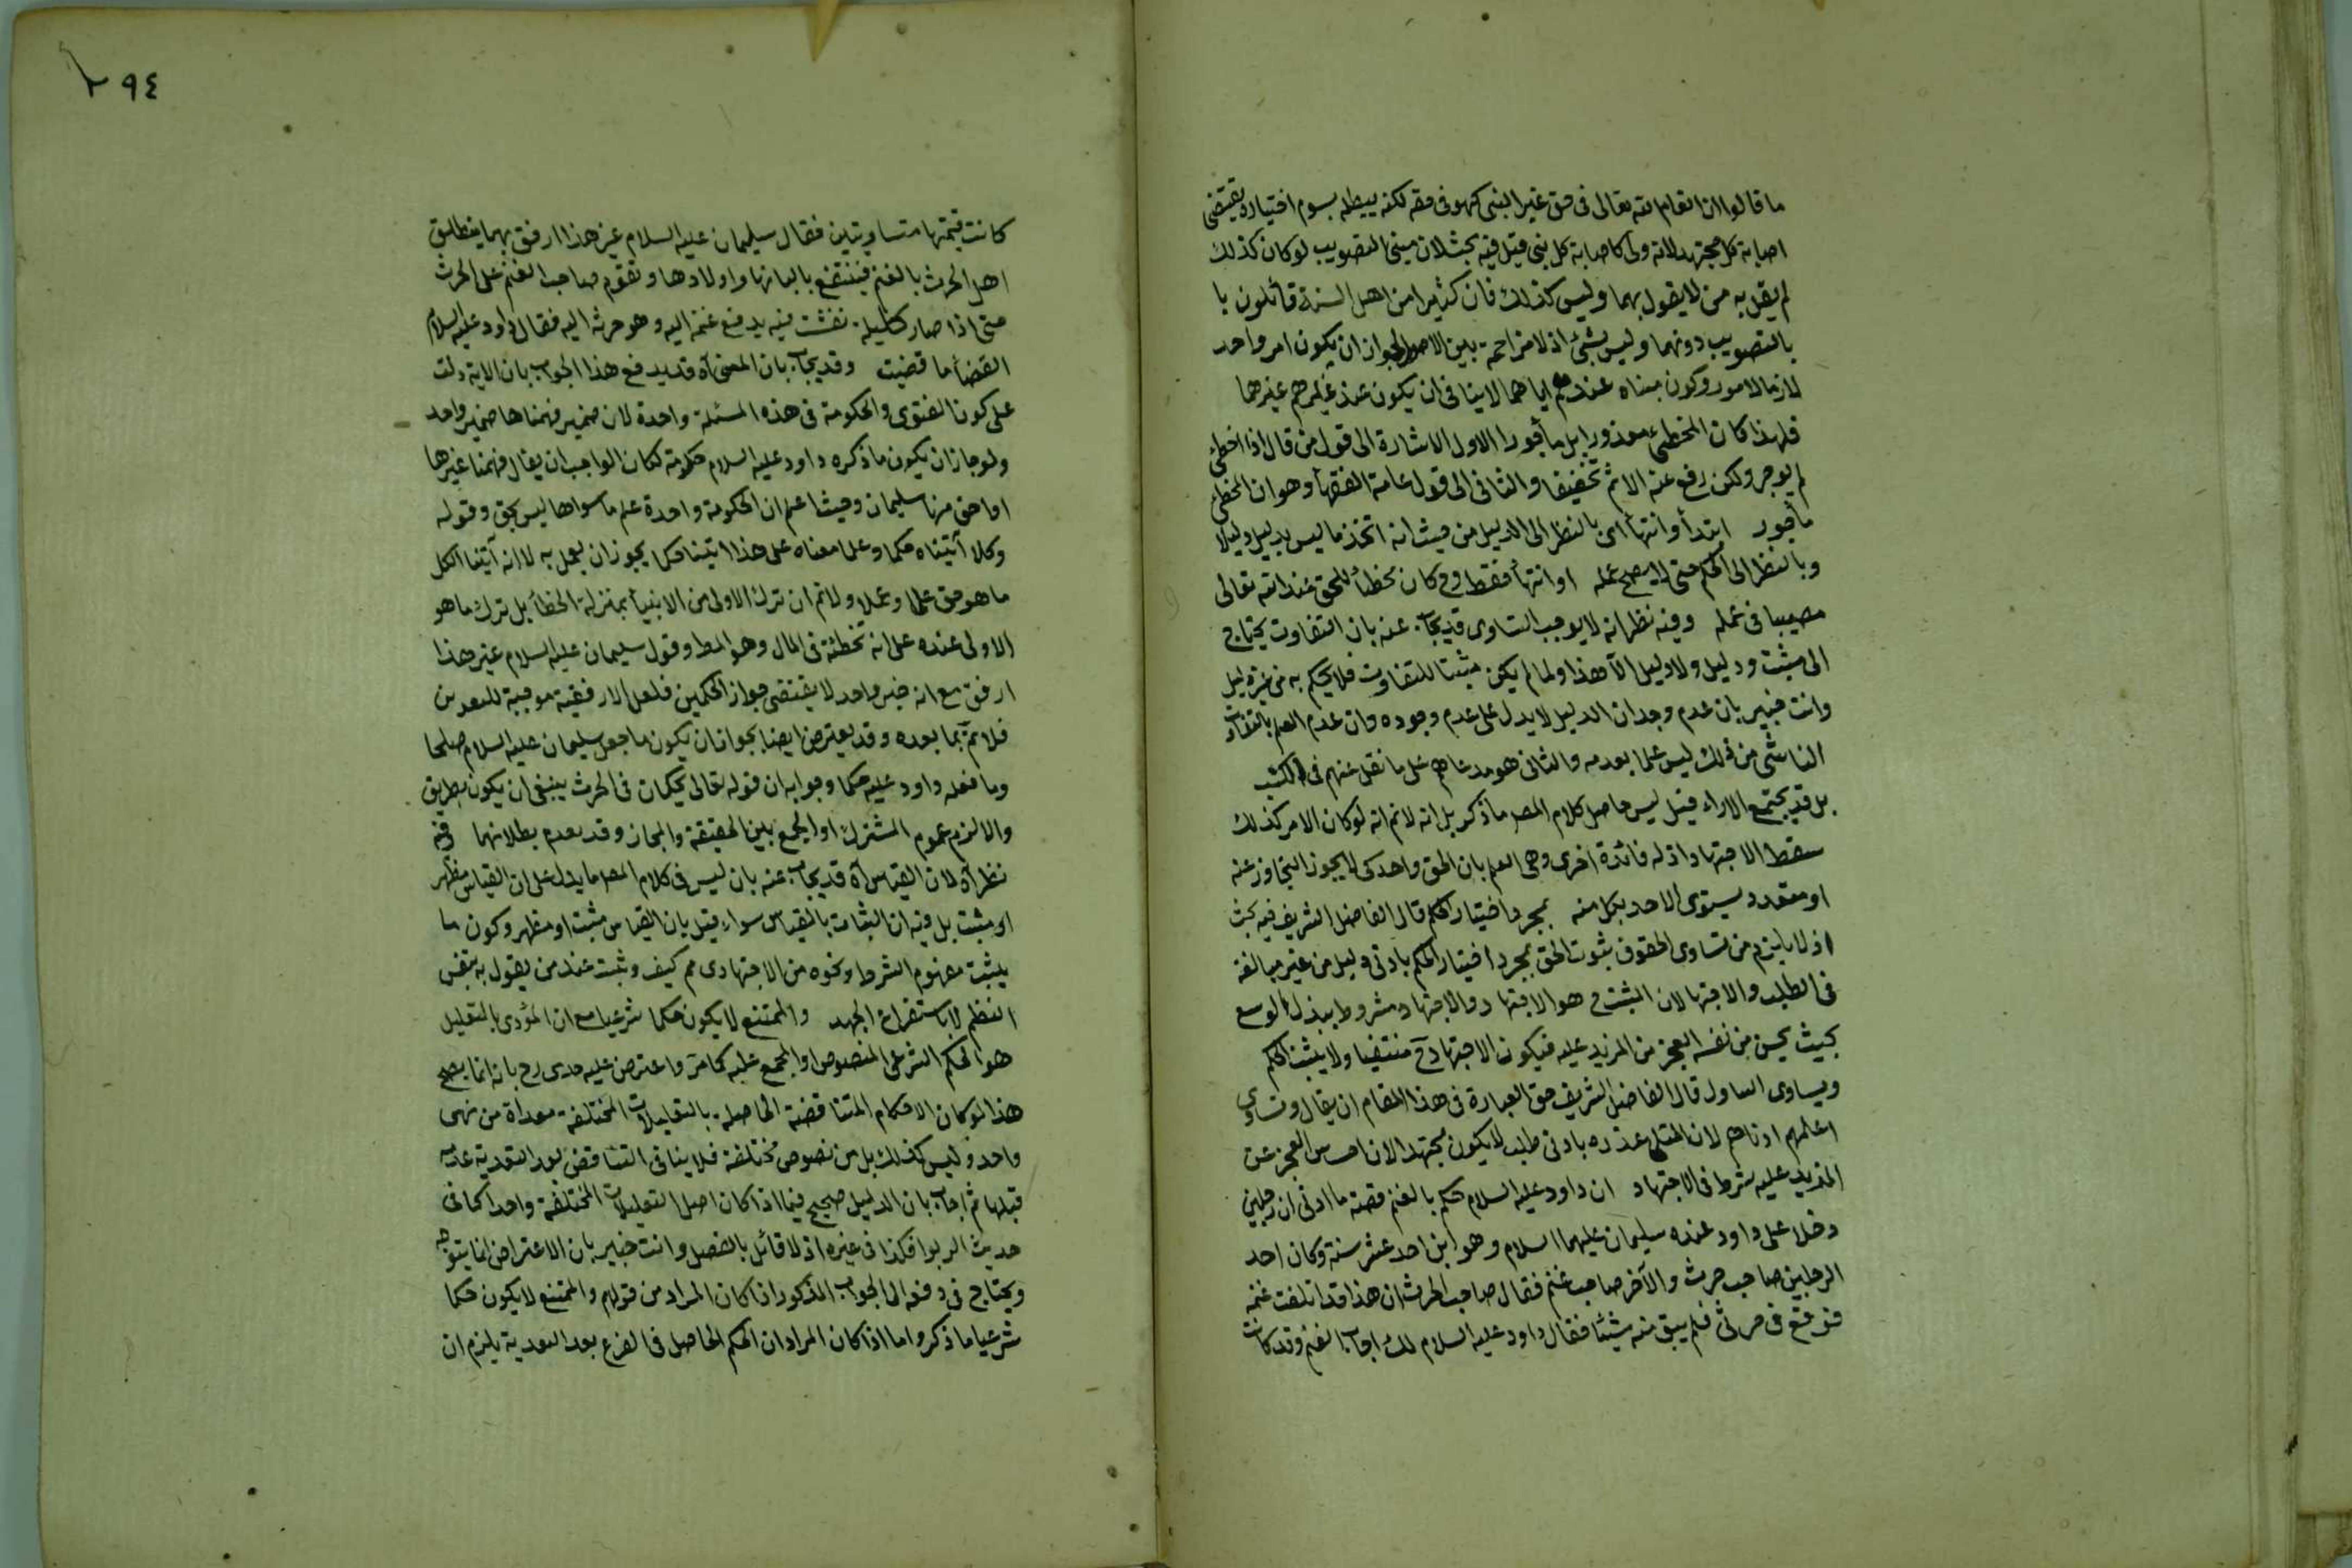 ما قالوا ان انعام الله تعالى فى حق غير النبى كهو فى حقه لكنه يبطله بسوم اختياره يقتضى
اصابة كل مجتهد لانه ولى كاصابة كل نبى قيل فيه بحث لان مبنى التصويب لو كان كذلك
لم يقل به من لا يقول بهما وليس كذلك فان كثيرا من اهل السنة قائلون با
بالتصويب دونهما وليس بشئ اذ لا مزاحمة بين الاصول لجواز ان يكون امر واحد
لازما لامور وكون مبناه عندهم اياهما لا ينافى ان يكون عند غيرهم غيرهما
فلهذا كان المخطئ معذورا بل مأجورا الاول الاشارة الى قول من قال اذا اخطئ
لم يوجر ولكن رفع عنه الاثم تخفيفا والثانى الى قول عامة الفقهأ وهو ان المخطئ
مأجور ابتدأ وانتهأ اى بالنظر الى الدليل من حيث انه اتخذ ما ليس بدليل دليلا
وبالنظر الى الحكم حتى لا يصح عمله او انتهأ فقط وح كان مخطأ للحق عند الله تعالى
مصيبا فى عمله وفيه نظر انه لا يوجب التساوى قد يجاب عنه بان التفاوت يحتاج
الى مثبت ودليل ولا دليل الا هذا ولما لم يكن مثبتا للتفاوت فلا يحكم به من غير دليل
وانت خبير بان عدم وجدان الدليل لا يدل على عدم وجوده وان عدم العلم بالتفاوت
الناشى من ذلك ليس علما بعدمه والثانى هو مدعاهم على ما نقل عنهم فى الكتب
بل قد يجتمع الاراء قيل ليس حاصل كلام المصر ما ذكر بل انه لانم انه لو كان الامر كذلك
سقط الاجتهاد اذ له فائدة اخرى وهى العلم بان الحق واحد كى لا يجوز التجاوز عنه
او متعدد يستوى الاحد بكل منه بمجرد اختيار الحكم قال الفاضل الشريف فيه بحث
اذ لا يلزم من تساوى الحقوق ثبوت الحق بمجرد اختيار الحكم بادنى دليل من غير مبالغة
فى الطلب والاجتها لان المثبت ح هو الاجتهاد والاجتهاد مشروط ببذل الوسع
بحيث يحس من نفسه العجز من المزيد عليه فيكون الاجتهاد ح منتفيا ولا يثبت الحكم
ويساوى الساول قال الفاضل الشريف حق العبارة فى هذا المقام ان يقال وتساوى
اعلمهم ادناهم لان المبلى عذره بادنى طلب لا يكون مجتهدا لان احساس العجز عن
المزيد عليه شرط فى الاجتهاد ان داود عليه السلام حكم بالغنم قصته ما ادنى ان رجلين
دخلا على داود عنده سليمان عليهما السلام وهو ابن احد عشر سنة وكان احد
الرجلين صاحب حرث والآخر صاحب غنم فقال صاحب الحرث ان هذا قد انفلتت غنمه
فوقع فى حرثى فلم يبق منه شيئا فقال داود عليه السلام لك رقاب الغنم وقد كانت
٢٩٤
كانت قيمتها متساويتين فقال سليمان عليه السلام غير هذا ارفق بهما ينطلق
اهل الحرث بالغنم فينتفع بالبانها واولادها وتقوم صاحب الغنم على الحرث
حتى اذا صار كليلة نفشت فيه يدفع غنمه اليه وهو حرثه اليه فقال داود عليه السلام
القضأ ما قضيت وقد يجاب بان المعنى آه قد يدفع هذا الجواب بان الاية دلت
على كون الفتوى والحكومة فى هذه المسئلة واحدة لان ضمير فهمناها ضمير واحد
ولو جاز ان يكون ما ذكره داود عليه السلام حكومة لكان الواجب ان يقال ففهمنا غيرها
او احق منها سليمان وحيث اعلم ان الحكومة واحدة علم ما سواها ليس بحق وقوله
وكلا آتيناه حكما وعلما معناه على هذا اتينا حكما يجوز ان يعمل به لا انه آتينا الكل
ما هو حق علما وعملا ولانم ان ترك الاولى من الانبيأ بمنزلة الخطأ بل ترك ما هو
الاولى عنده على انه تخطئة فى المال وهو المط وقول سليمان عليه السلام غير هذا
ارفق مع انه خبر واحد لا يقتضى جواز الحكمين فلعل الارفقية موجبة للتعدين
فلا تمّ بما بعده وقد يعترض ايضا بجواز ان يكون ما جعل سليمان عليه السلام صلحا
وما فعله داود عليه حكما وجوابه ان قوله تعالى يحكمان فى الحرث ينبغى ان يكون بطريق
والا لزم عموم المشترك او الجمع بين الحقيقة والمجاز وقد بعدم بطلانهما وفيه
نظر آه لان القياس آه قد يجاب عنه بان ليس فى كلام المصر ما يدل على ان القياس مظهر
او مثبت بل فيه ان الثابت بالقياس سواء قيل بان القياس مثبت او مظهر وكون ما
يثبت مفهوم الشرط ونحوه من الاجتهادى مم كيف وثبت عند من يقول به بنفس
النظم لا باستفراغ الجهد والممتنع لا يكون حكما شرعيا مع ان المؤدى بالتعليل
هو الحكم الشرعى المنصوص او المجمع عليه كما مر واعترض عليه جدى رح بانه انما يصح
هذا لو كان الاحكام المتناقضة الحاصلة بالتعليلات المختلفة معداة من نهى
واحد وليس كذلك بل من نصوص مختلفة فلا ينافى التناقض بعد التعدية عدمه
قبلها ثم اجاب بان الدليل صحيح فيما اذا كان اصل التعليلات المختلفة واحدا كما فى
حديث الربوا فكذا فى غيره اذ لا قائل بالفصل وانت خبير بان الاعتراض انما يتوجه
ويحتاج فى دفعه الى الجواب المذكور اذا كان المراد من قولهم والممتنع لا يكون حكما
شرعيا ما ذكر واما اذا كان المراد ان الحكم الحاصل فى الفرع بعد التعدية يلزم ان